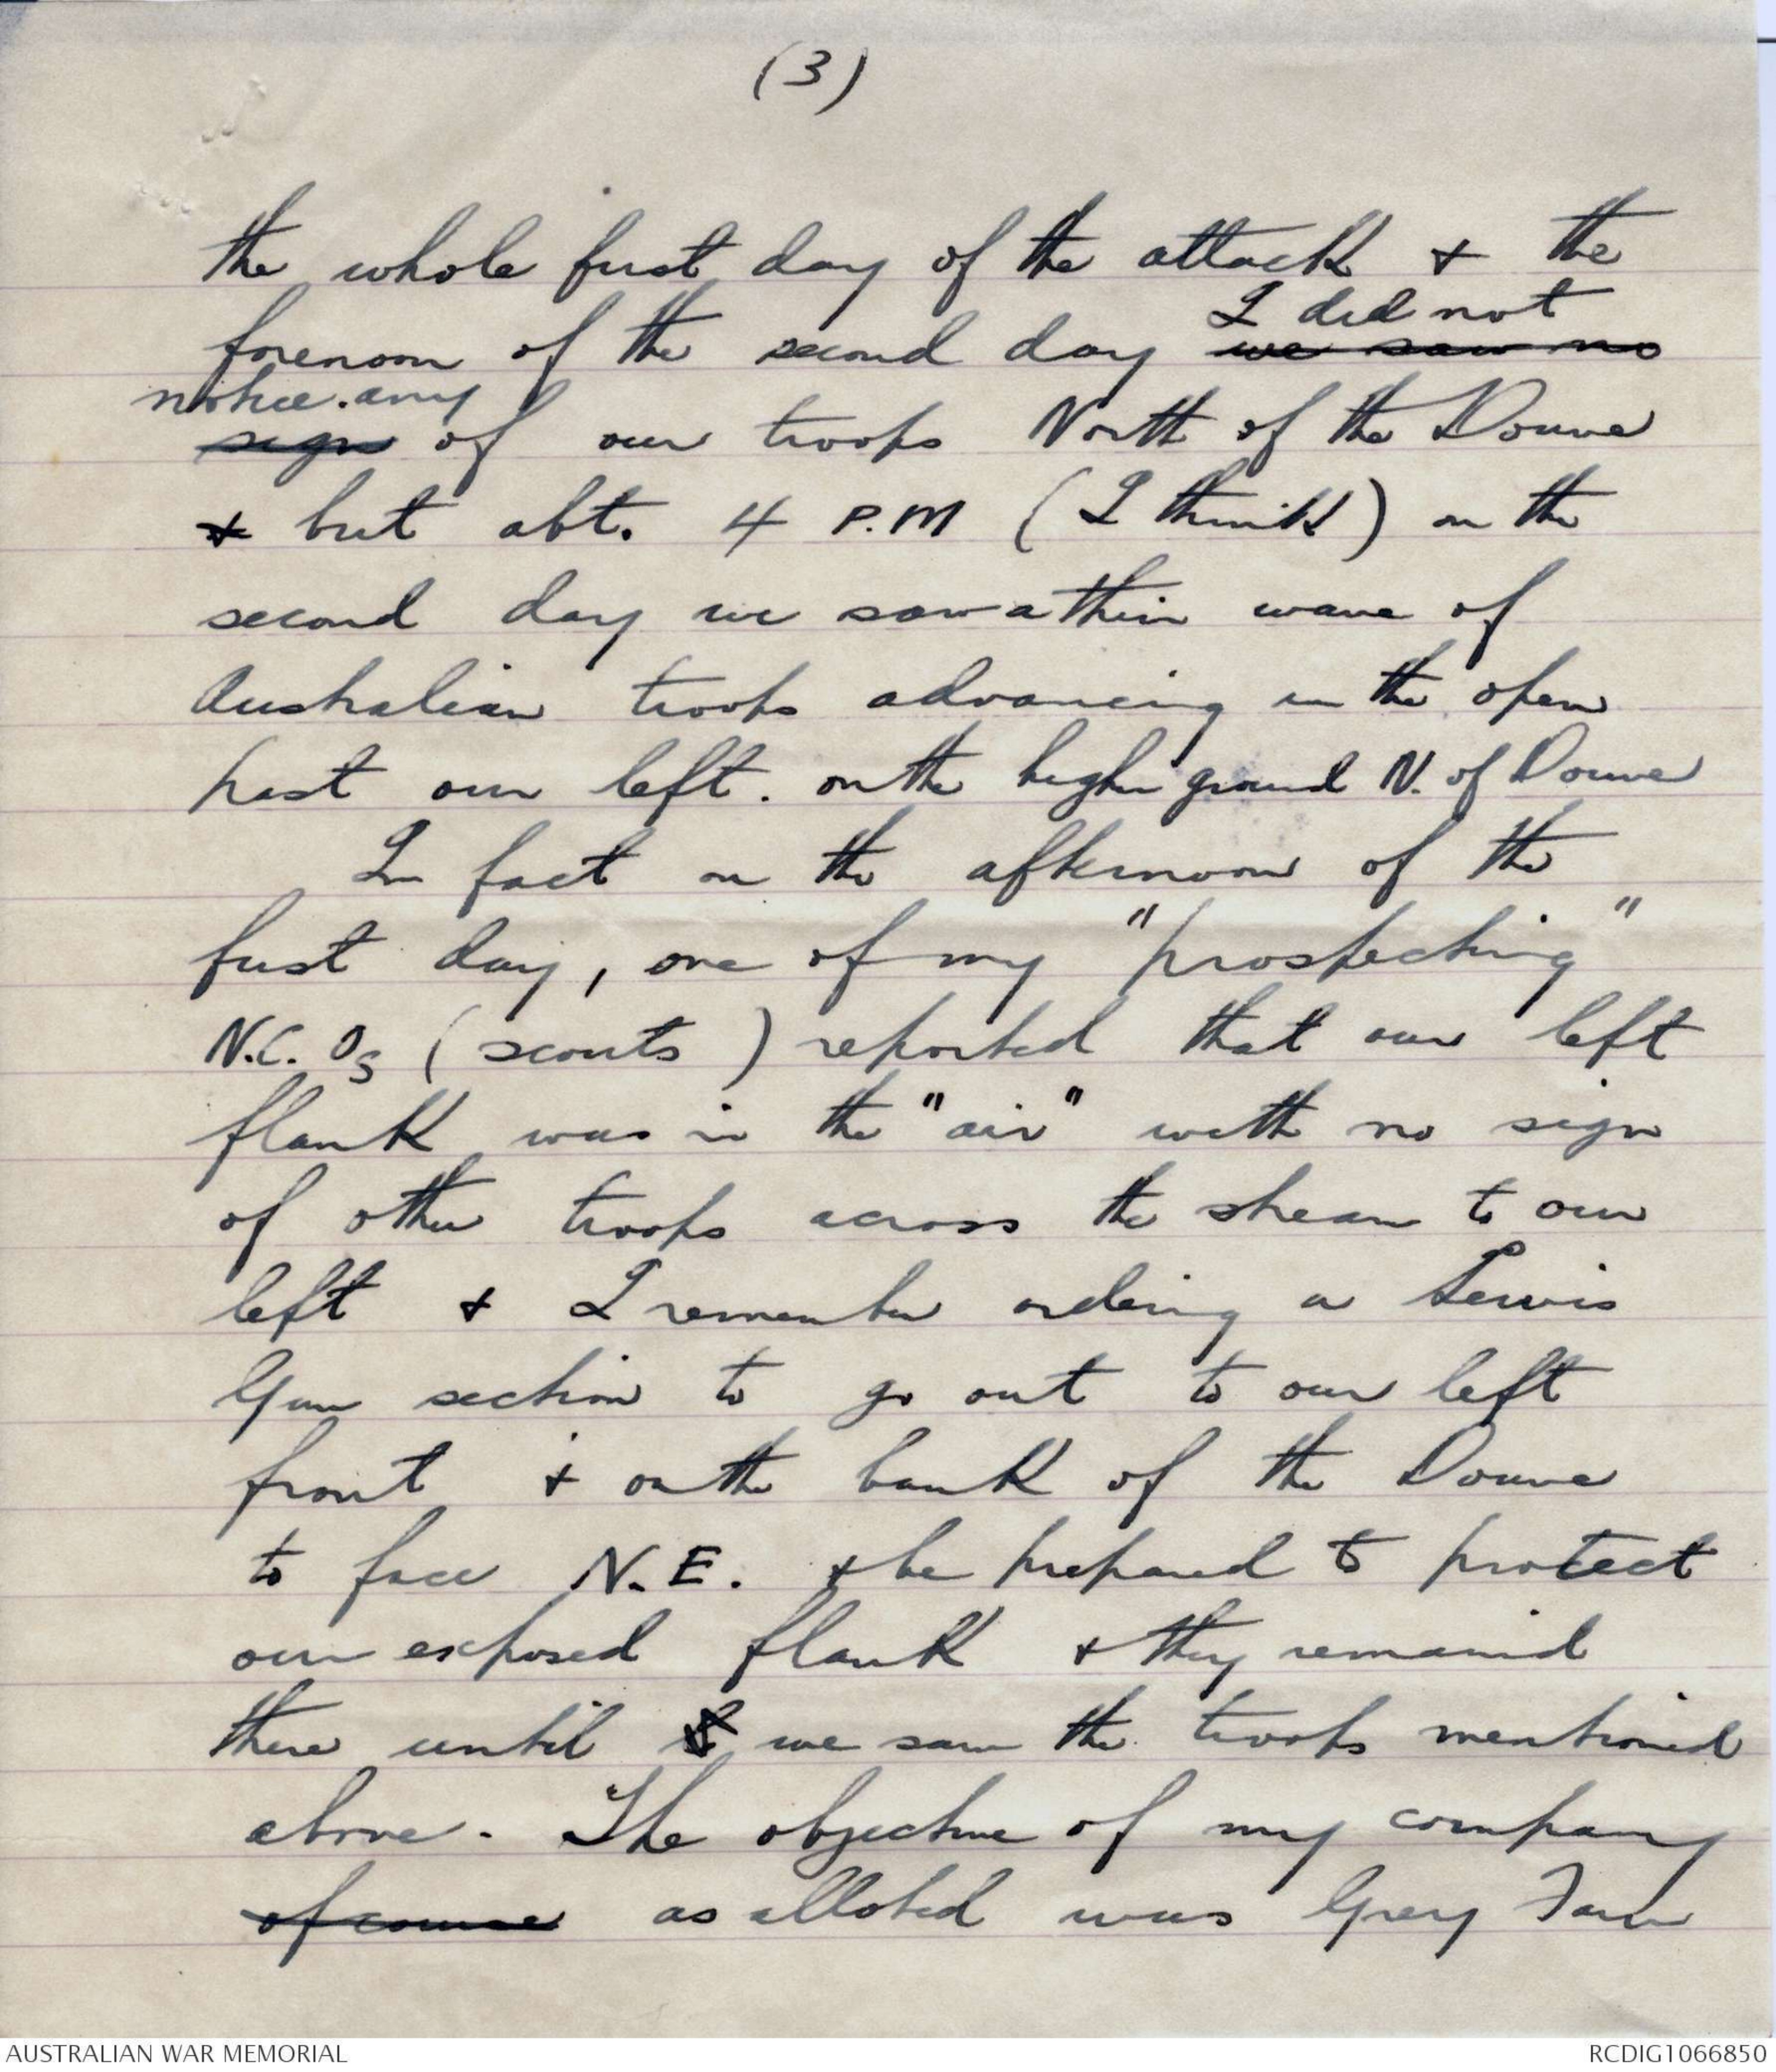 (3)
the whole first day of the attack & the
I did not
forenoon of the second day we saw no
notice any
sign of our troops North of the Douve
& but abt. 4 P.M (I think) on the
second day we saw a thin wave of
Australian troops advancing in the open
past our left. on the higher ground N. of Douve
In fact on the afternoon of the
first day, one of my "prospecting"
N.C.Os (scouts) reported that our left
flank was in the "air" with no sign
of other troops across the stream to our
left & I remember ordering a Lewis
Gun section to go out to our left
front & on the bank of the Douve
to face N.E. & be prepared to protect
our exposed flank & they remained
there until we saw the troops mentioned
above. The objective of my company
of course as alloted was Grey Farm
AUSTRALIAN WAR MEMORIAL
RCDIG1066850